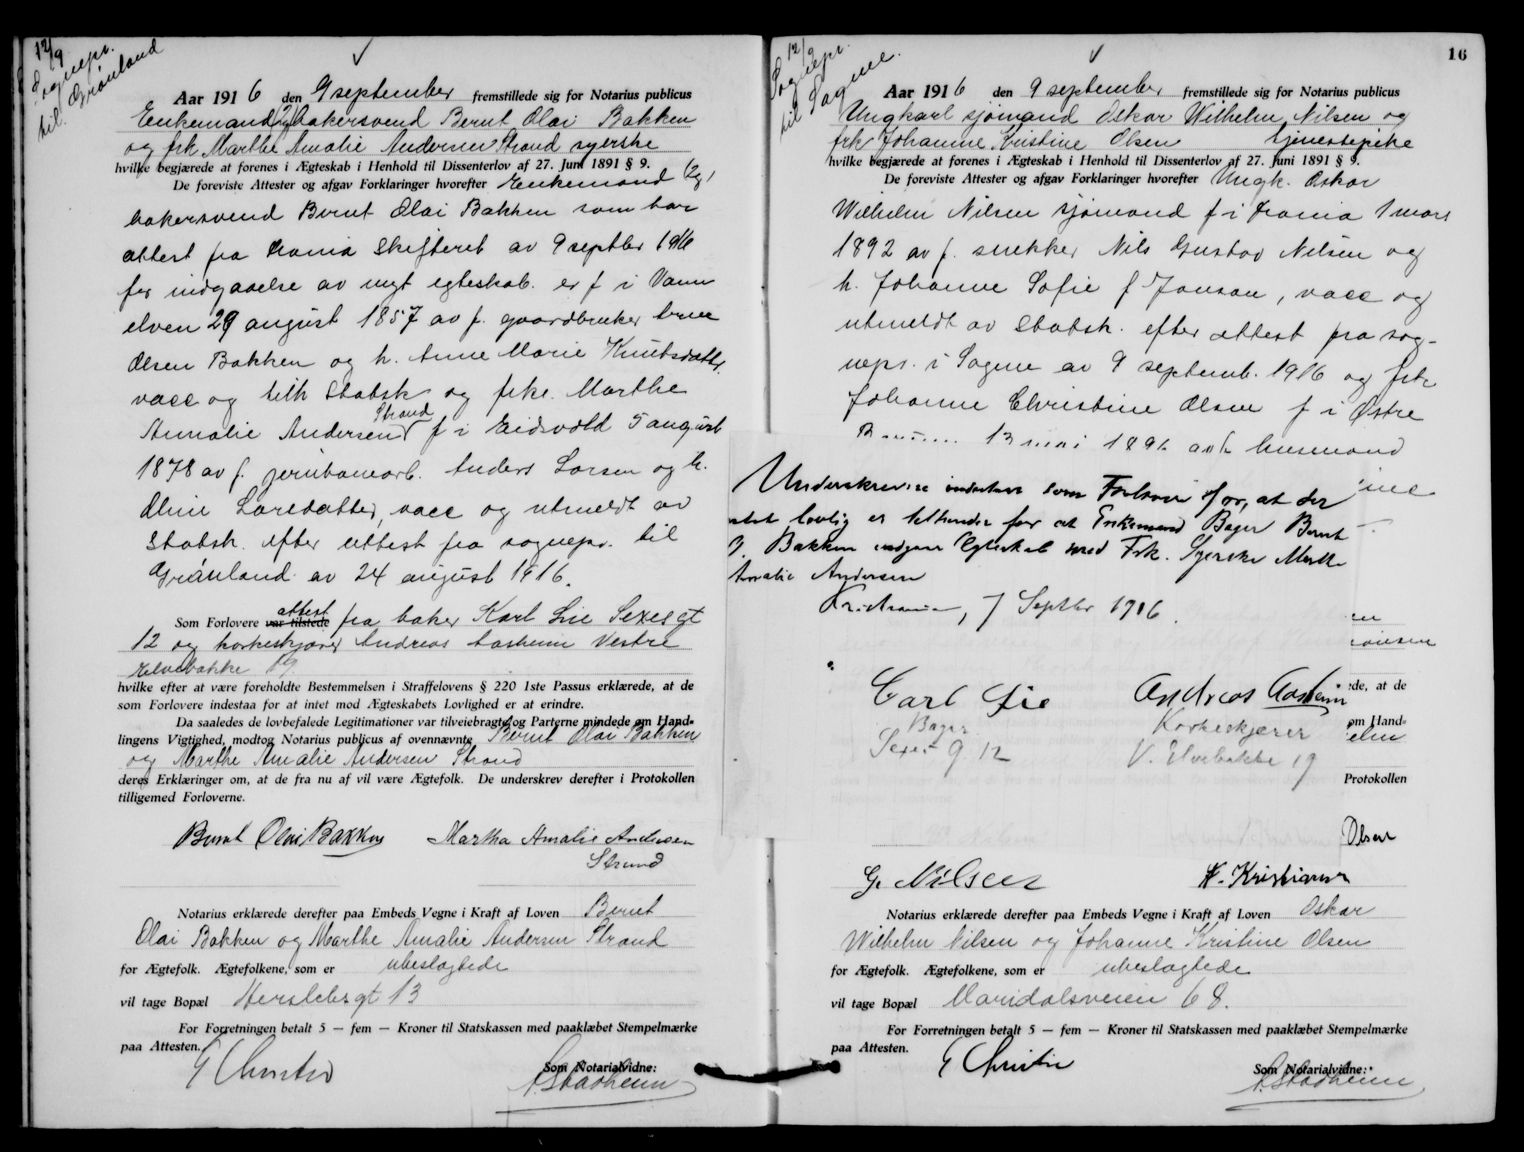 12/9
Sognepr.
til Grönland
Aar 1916 den 9 september fremstillede sig for Notarius publicus
Enkemand bakersvend Bernt Olai Bakken
og frk Marthe Amalie Andersen Strand syerske
hvilke begjærede at forenes i Ægteskab i Henhold til Dissenterlov af 27. Juni 1891 § 9.
De foreviste Attester og afgav Forklaringer hvorefter Enkemand
bakersvend Bernt Olai Bakken som har
attest fra Krania Skifteret av 9 septbr 1916
for indgaaelse av nyt egteskab. er f i Vann
elven 29 august 1857 av f. gaardbruker
Olsen Bakken og h. Anne Marie Knutsdatter
vacc og tilh Statsk og frke. Marthe
Amalie Andersen Strand f i Eidsvold 5 august
1878 av f. jernbanearb. Anders Larsen og h.
Oline Larsdatter, vacc og utmeldt av
Statsk. efter attest fra sognepr. til
Grönland av 24 august 1916.
Som Forlovere var tilstede attest fra baker Karl Lie Sexesgt
12 og korkeskjærer Andreas Aasheim Vestre
Elvebakke 19
hvilke efter at være foreholdte Bestemmelsen i Straffelovens § 220 1ste Passus erklærede, at de
som Forlovere indestaa for at intet mod Ægteskabets Lovlighed er at erindre.
Da saaledes de lovbefalede Legitimationer var tilveiebragte og Parterne mindede om Hand-
lingens Vigtighed, modtog Notarius publicus af ovennævnte Bernt Olai Bakken
og Marthe Amalie Andersen Strand
deres Erklæringer om, at de fra nu af vil være Ægtefolk. De underskrev derefter i Protokollen
tilligemed Forloverne.
Bernt Olai Bakken Martha Amalie Andersen
Strand
Notarius erklærede derefter paa Embeds Vegne i Kraft af Loven Bernt
Olai Bakken og Marthe Amalie Andersen Strand
for Ægtefolk. Ægtefolkene, som er ubeslagtede
vil tage Bopæl Herslebsgt 13
For Forretningen betalt 5 — fem — Kroner til Statskassen med paaklæbet Stempelmærke
paa Attesten.
Som Notarialvidne:
16
12/9
Sognepr.
til Sagene.
Aar 1916 den 9 september fremstillede sig for Notarius publicus
Ungkarl sjömand Oskar Wilhelm Nilsen og
frk Johanne Kristine Olsen tjenestepike
hvilke begjærede at forenes i Ægteskab i Henhold til Dissenterlov af 27. Juni 1891 § 9.
De foreviste Attester og afgav Forklaringer hvorefter Ungk. Oskar
Wilhelm Nilsen sjömand f i Krania 1 mars
1892 av f. snekker Nils Gustav Nilsen og
h. Johanne Sofie f Jonson, vacc og
utmeldt av Statsk. efter attest fra sog-
nepr. i Sagene av 9 septemb. 1916 og frk
Johanne Christine Olsen f i Østre
13 mai husmand
Underskrevne indestaar som Forlover for, at der
intet lovlig er tilhinder for at Enkemand Bager Bernt
O. Bakken indgaar Egteskab med Frk. Syerske Marthe
Amalie Andersen
Kristiania, 7 Septbr 1916.
Carl Lie Andreas Aasheim
Bager Korkeskjærer
Sexesg. 12 V. Elvebakke 19
ede, at de
om Hand-
Protokollen
Olsen
G. Nilsen
Notarius erklærede derefter paa Embeds Vegne i Kraft af Loven Oskar
Wilhelm Nilsen og Johanne Kristine Olsen
for Ægtefolk. Ægtefolkene, som er ubeslagtede
vil tage Bopæl Maridalsveien 68.
For Forretningen betalt 5 — fem — Kroner til Statskassen med paaklæbet Stempelmærke
paa Attesten.
Som Notarialvidne: